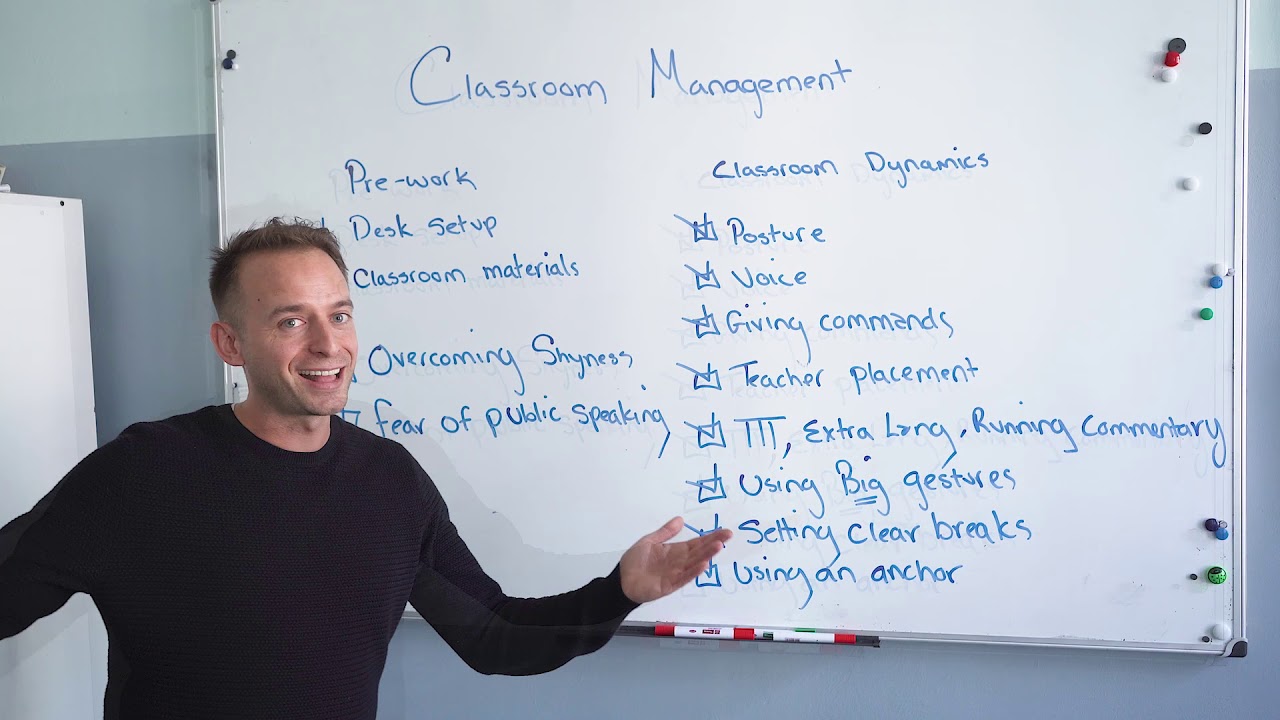 Classroom Management
Pre-work
Desk Setup
Classroom materials
Overcoming Shyness
fear of public speaking
Classroom Dynamics
Posture
Voice
Giving commands
Teacher placement
TTT, Extra Lang, Running Commentary
Using Big gestures
Setting clear breaks
Using an anchor